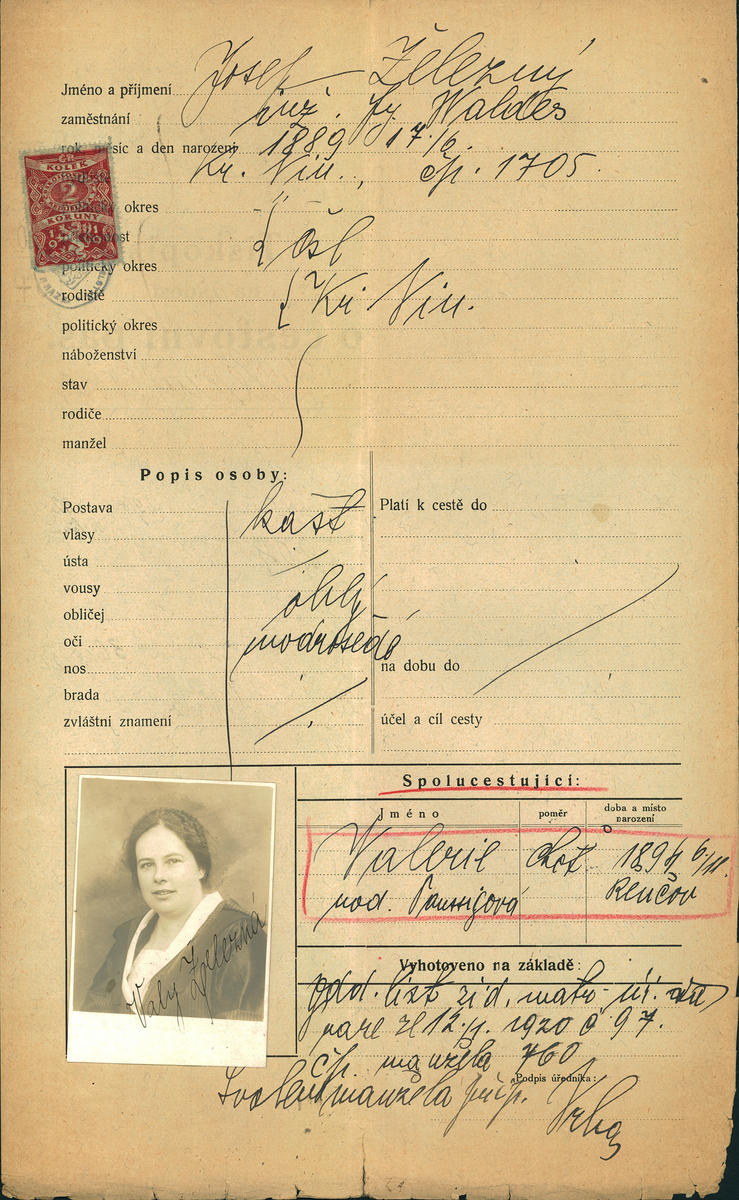 Jméno a příjmení Josef Železný
zaměstnání inž. fy. Waldes
rok, měsíc a den narození 1889 17./6.
Kr. Vin., čp. 1705.
ČR.
KOLEK
2
KORUNY
1919
okres
politický okres čsl
rodiště
politický okres Kr. Vin.
náboženství
stav
rodiče
manžel
Popis osoby:
Postava
vlasy kašt
ústa
vousy
obličej oblý
oči modrošedé
nos
brada
zvláštní znamení
Platí k cestě do
na dobu do
účel a cíl cesty
Spolucestující:
Jméno poměr doba a místo narození
Valerie choť 1894 6/11.
rod. Renčov
Valy Železná
Vyhotoveno na základě:
odd. list žid. matr.
ze 12./1. 1920 č 97.
čp. manžela 760
Podpis úředníka:
manžela přip.